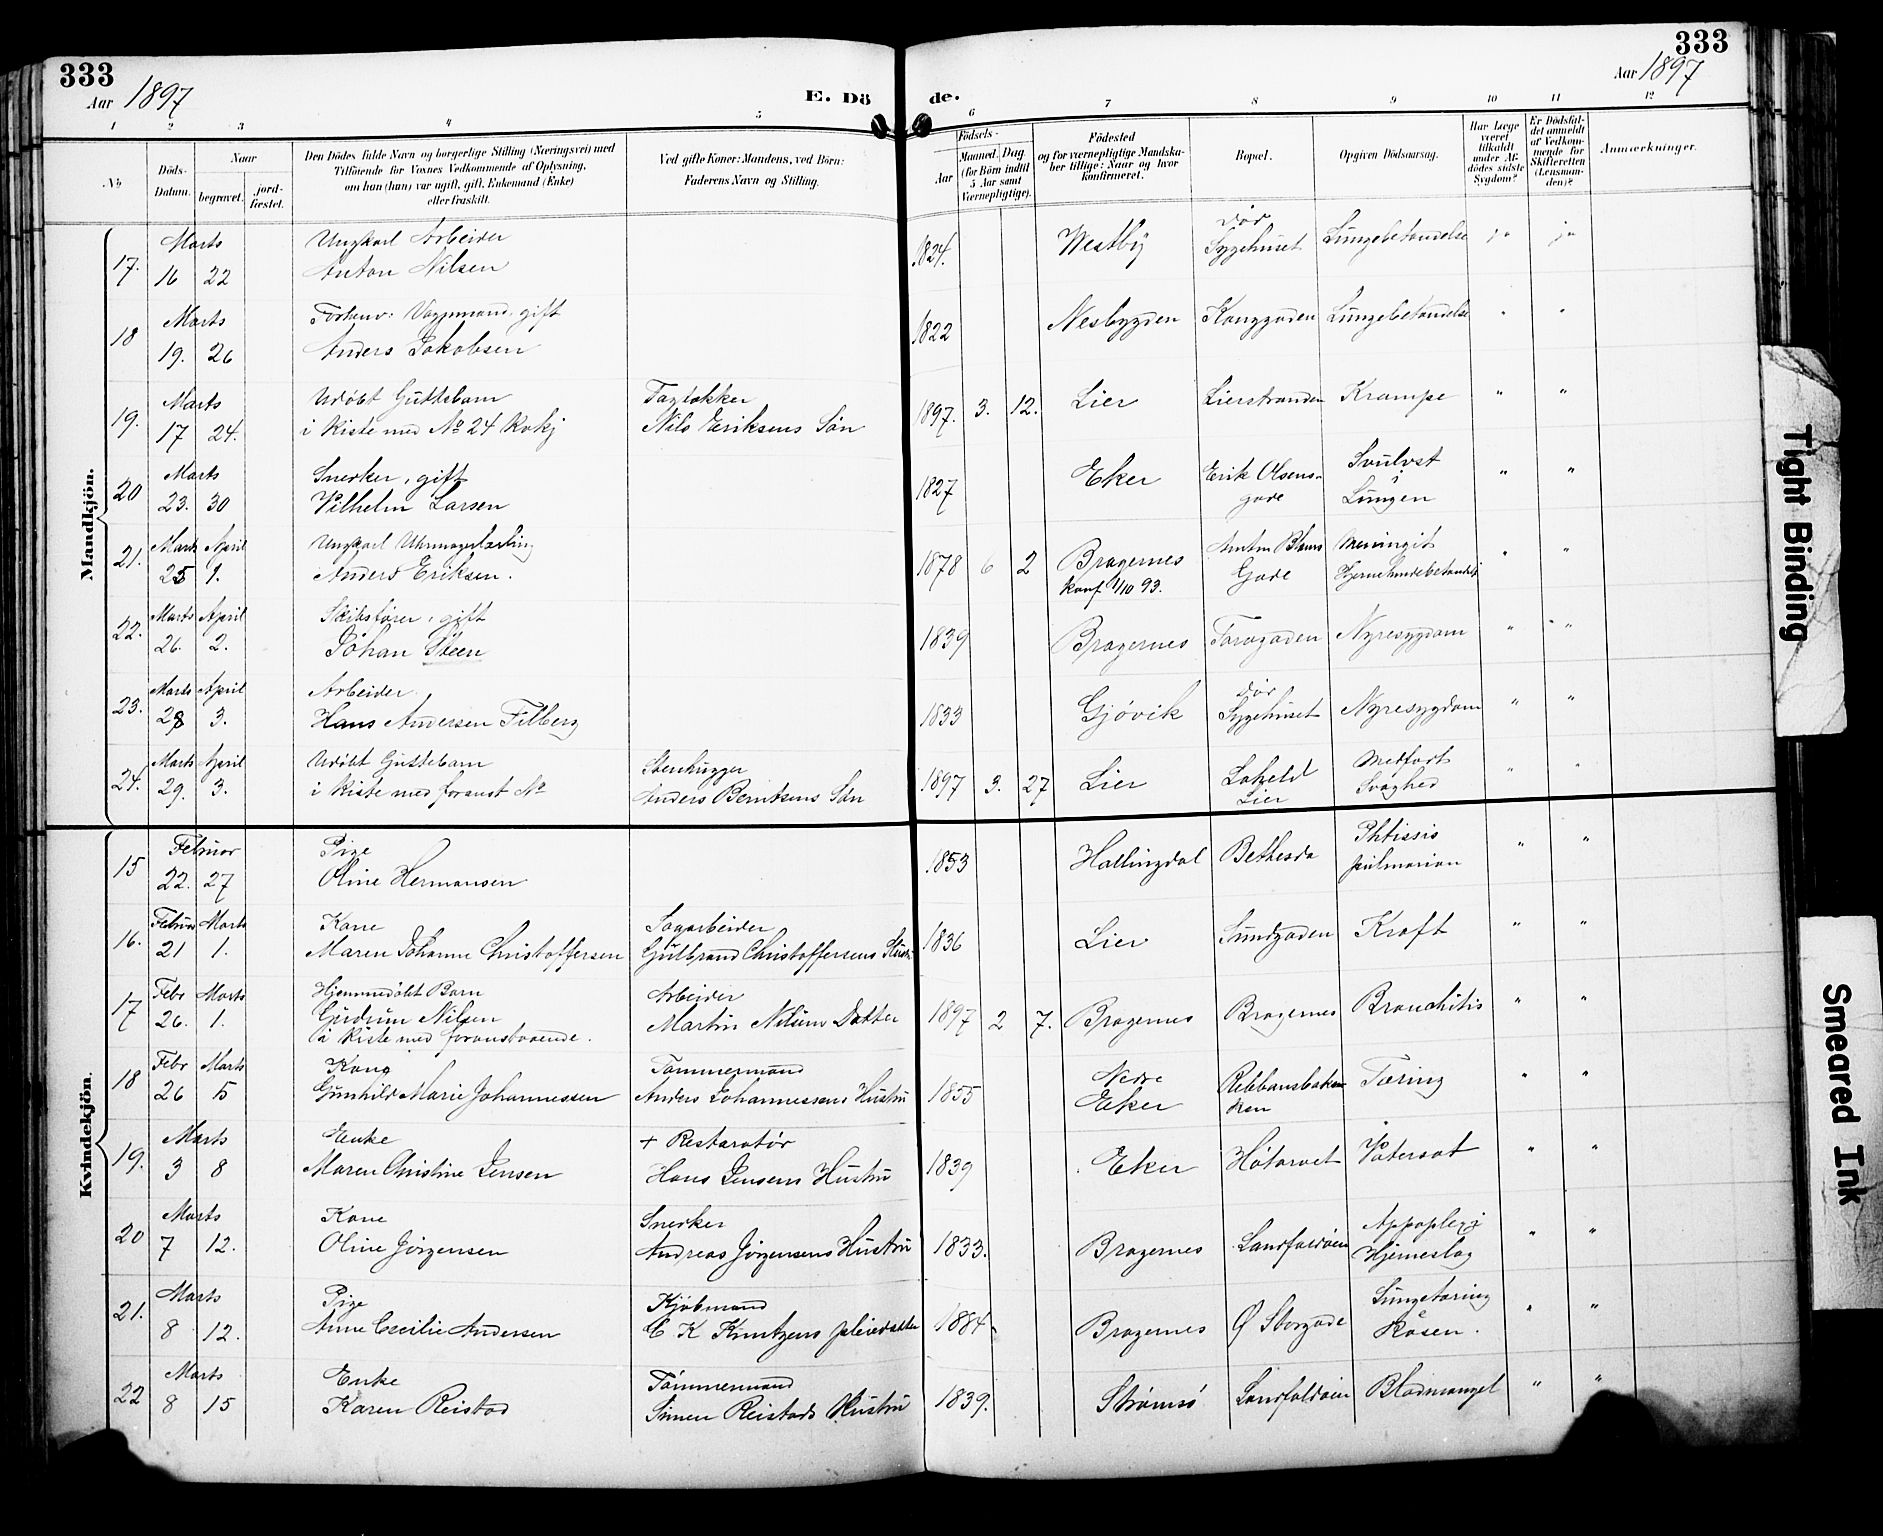 333
Aar 1897
E. Dö
de.
333
Aar 1897
1 2 3 4 5 6 7 8 9 10 11 12
No
Döds-
Datum.
Naar
begravet.
jord-
fæstet.
Den Dödes fulde Navn og borgerlige Stilling (Næringsvei) med
Tilföiende for Voxnes Vedkommende af Oplysning,
om han (hun) var ugift, gift, Enkemand (Enke)
eller fraskilt.
Ved gifte Koner: Mandens, ved Börn:
Faderens Navn og Stilling.
Födsels-
Aar
Maaned. Dag
(for Börn indtil
5 Aar samt
Værnepligtige).
Födested
og for værnepligtige Mandska-
ber tillige: Naar og hvor
konfirmeret.
Bopæl.
Opgiven Dödsaarsag.
Har Læge
været
tilkaldt
under Af-
dödes sidste
Sygdom?
Er Dödsfal-
det anmeldt
af Vedkom-
mende for
Skifteretten
(Lensman-
den)?
Anmærkninger.
Mandkjön.
17. Marts 16 22
Ungkarl Arbeider
Anton Nilsen
1824. Westby
dør
Sygehuset
Lungebetændelse ja ja
18 Marts 19. 26
Forhenv: Vognmand. gift
Anders Jakobsen
1822 Nesbygden Konggaden Lungebetændelse " "
19. Marts 17 24.
Udöbt Guttebarn
i Kiste med No 24 Kvkj
Nils Eriksens Sön
1897. 3. 12. Lier Lierstranden Krampe " "
20 Marts 23. 30
Snerker, gift
Vilhelm Larsen
1827 Eker
Erik Olsens-
gade
Svulst
i
Lungen " "
21. Marts April 25 1.
Ungkarl Uhrmagerlærling
Anders Eriksen.
1878 6 2 Bragernes
konf 1/10 93.
Gade
Meningit
Hjernehindebetændelse " "
22. Marts April 26. 2.
Skibsfører, gift
Johan Steen
1839 Bragernes Torvgaden Nyresygdom " "
23. Marts April 28 3.
Arbeider
Hans Andersen Filberg
1833 Gjövik
dør
Sygehuset
Nyresygdom " "
24. Marts April 29. 3.
Udöbt Guttebarn
i Kiste med foranst No
Stenhugger
Anders Berntsens Søn
1897 3. 27 Lier
Lier
Medfødt
Svaghed " "
Kvindekjön.
15 Februar 22. 27
Pige
Oline Hermansen
1853 Hallingdal Bethesda
Phtissis
" "
16. Februar Marts 21 1.
Kone
Maren Johanne Christoffersen
Sagarbeider
Gulbrand Christoffersens
1836 Lier Sundgaden Kræft " "
17 Febr Marts 26. 1.
Hjemmedöbt Barn
Gudrun Nilsen
i Kiste med foranstaaende.
Arbeider
Martin Nilsens Datter
1897 2 7. Bragernes Bragernes Bronchitis " "
18 Febr Marts 26 5
Kone
Gunhild Marie Johannessen
Tømmermand
Anders Johannessens Hustru
1855
Nedre
Eker
Tæring " "
19. Marts 3 8
Enke
Maren Christine Jensen
+ Restaratör
Hans Jensens Hustru
1839 Eker Vatersot " "
20 Marts 7 12.
Kone
Oline Jörgensen
Snerker
Andreas Jörgensens Hustru
1833. Bragernes Landfaldöien
Appoplexi
Hjerneslag " "
21. Marts 8 12.
Pige
Anne Cecilie Andersen
Kjøbmand
C K Knutzens pleiedatter
1884 Bragernes Ø Storgade
Lungetæring
" "
22 Marts 8 15
Enke
Karen Reistad
Tömmermand
Simen Reistads Hustru
1839. Strømsö Landfaldöien Blodmangel " "
Tight Binding
Smeared Ink